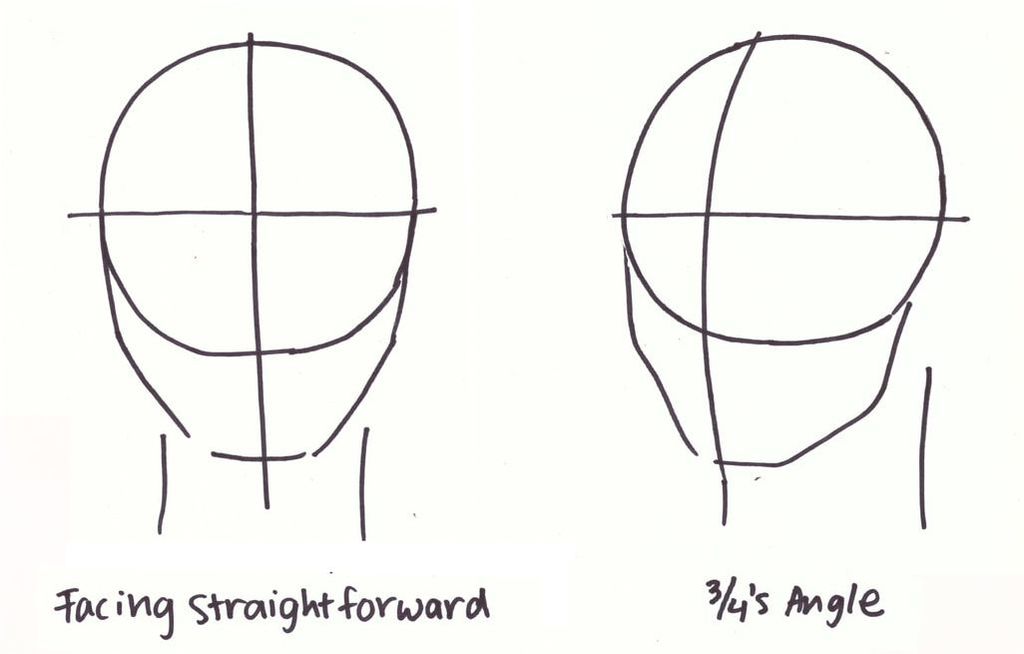 Facing straightforward
3/4's Angle